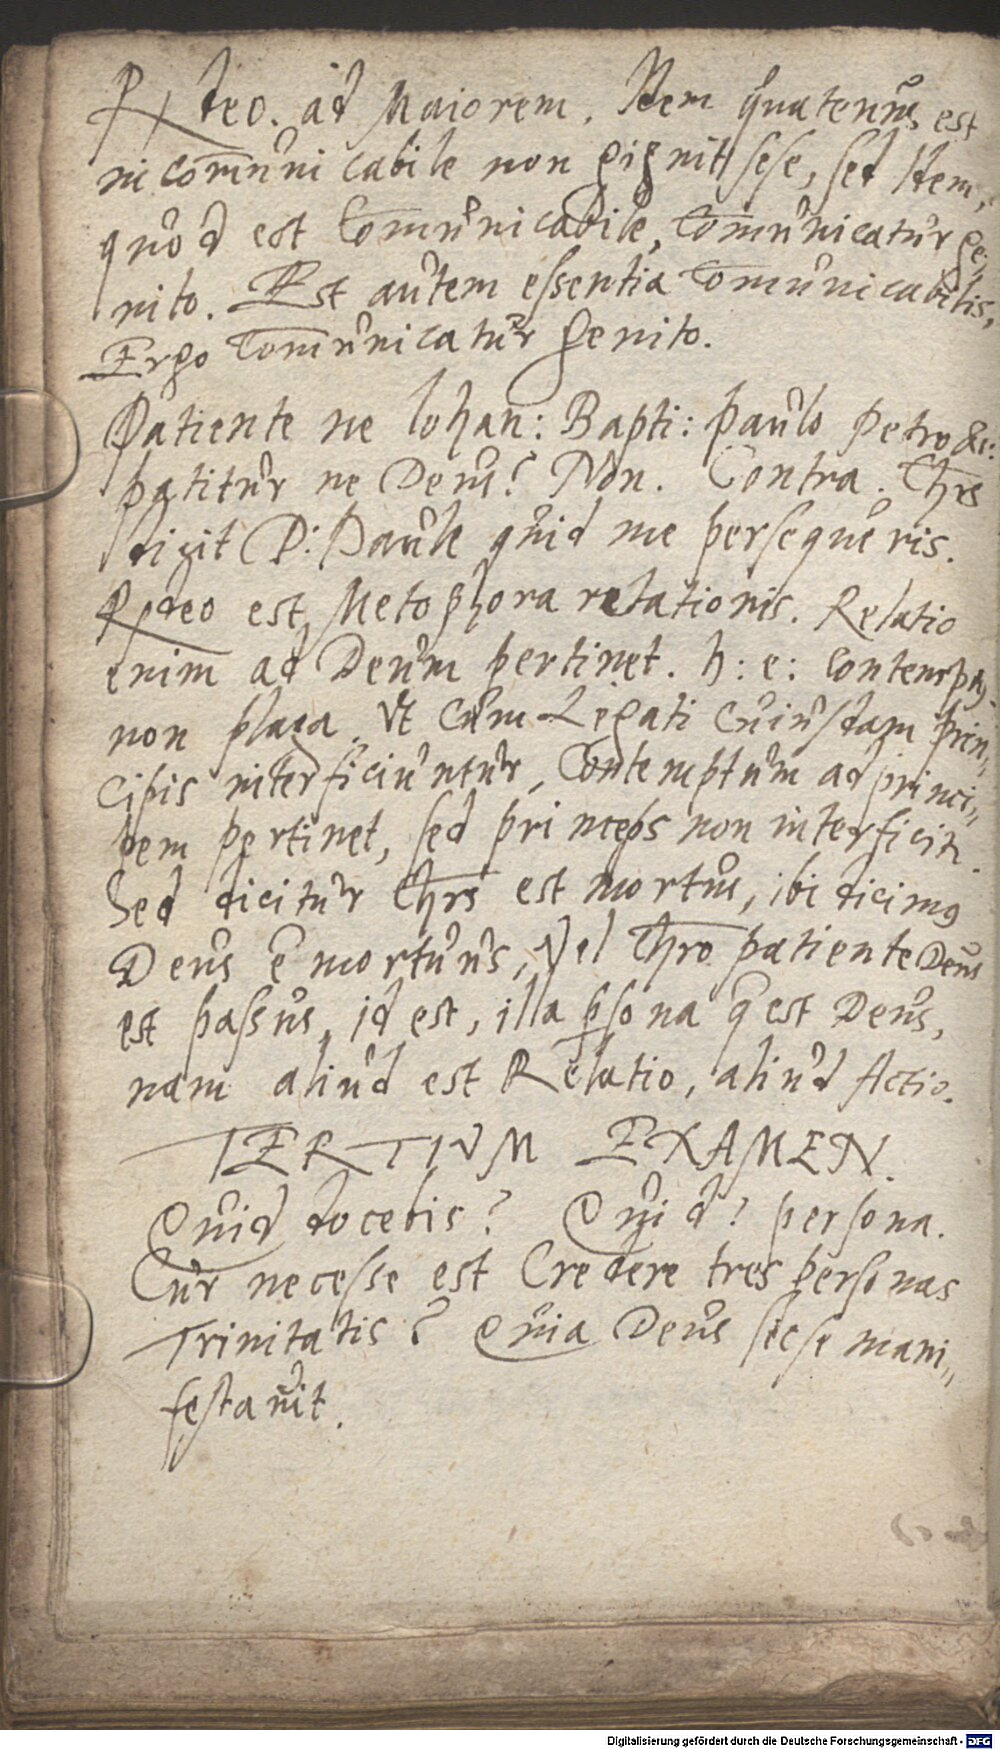 Rsdeo. ad Maiorem. Idem quatenus est
incomunicabile non gignit sese, sed Idem,
quod est Comunicabile, Comunicatur ge„
nito. Est autem essentia Comunicabilis,
Ergo Comunicatur genito.
Patiente ne Iohan: Bapti: paulo petro &c:
patitur ne Deus? Non. Contra. Chrs
dixit D: Paule quid me persequeris.
Rpdeo est Metophora relationis. Relatio
enim ad Deum pertinet. h: e: contemptus
non plaga. Ut Cum Legati Cuiusdam prin„
cipis interficiuntur, Contemptum ad princi„
pem pertinet, sed princeps non interficit.
Sed dicitur Chrs est mortuus, ibi dicimus
Deus e mortuus, Vel Chro patiente Deus
est passus, id est, illa psona q est Deus,
nam aliud est Relatio, aliud Actio.
TERTIVM EXAMEN.
Quid docetis? Quid? persona.
Cur necesse est Credere tres personas
Trinitatis? Quia Deus sese mani„
festavit.
Digitalisierung gefördert durch die Deutsche Forschungsgemeinschaft - DFG